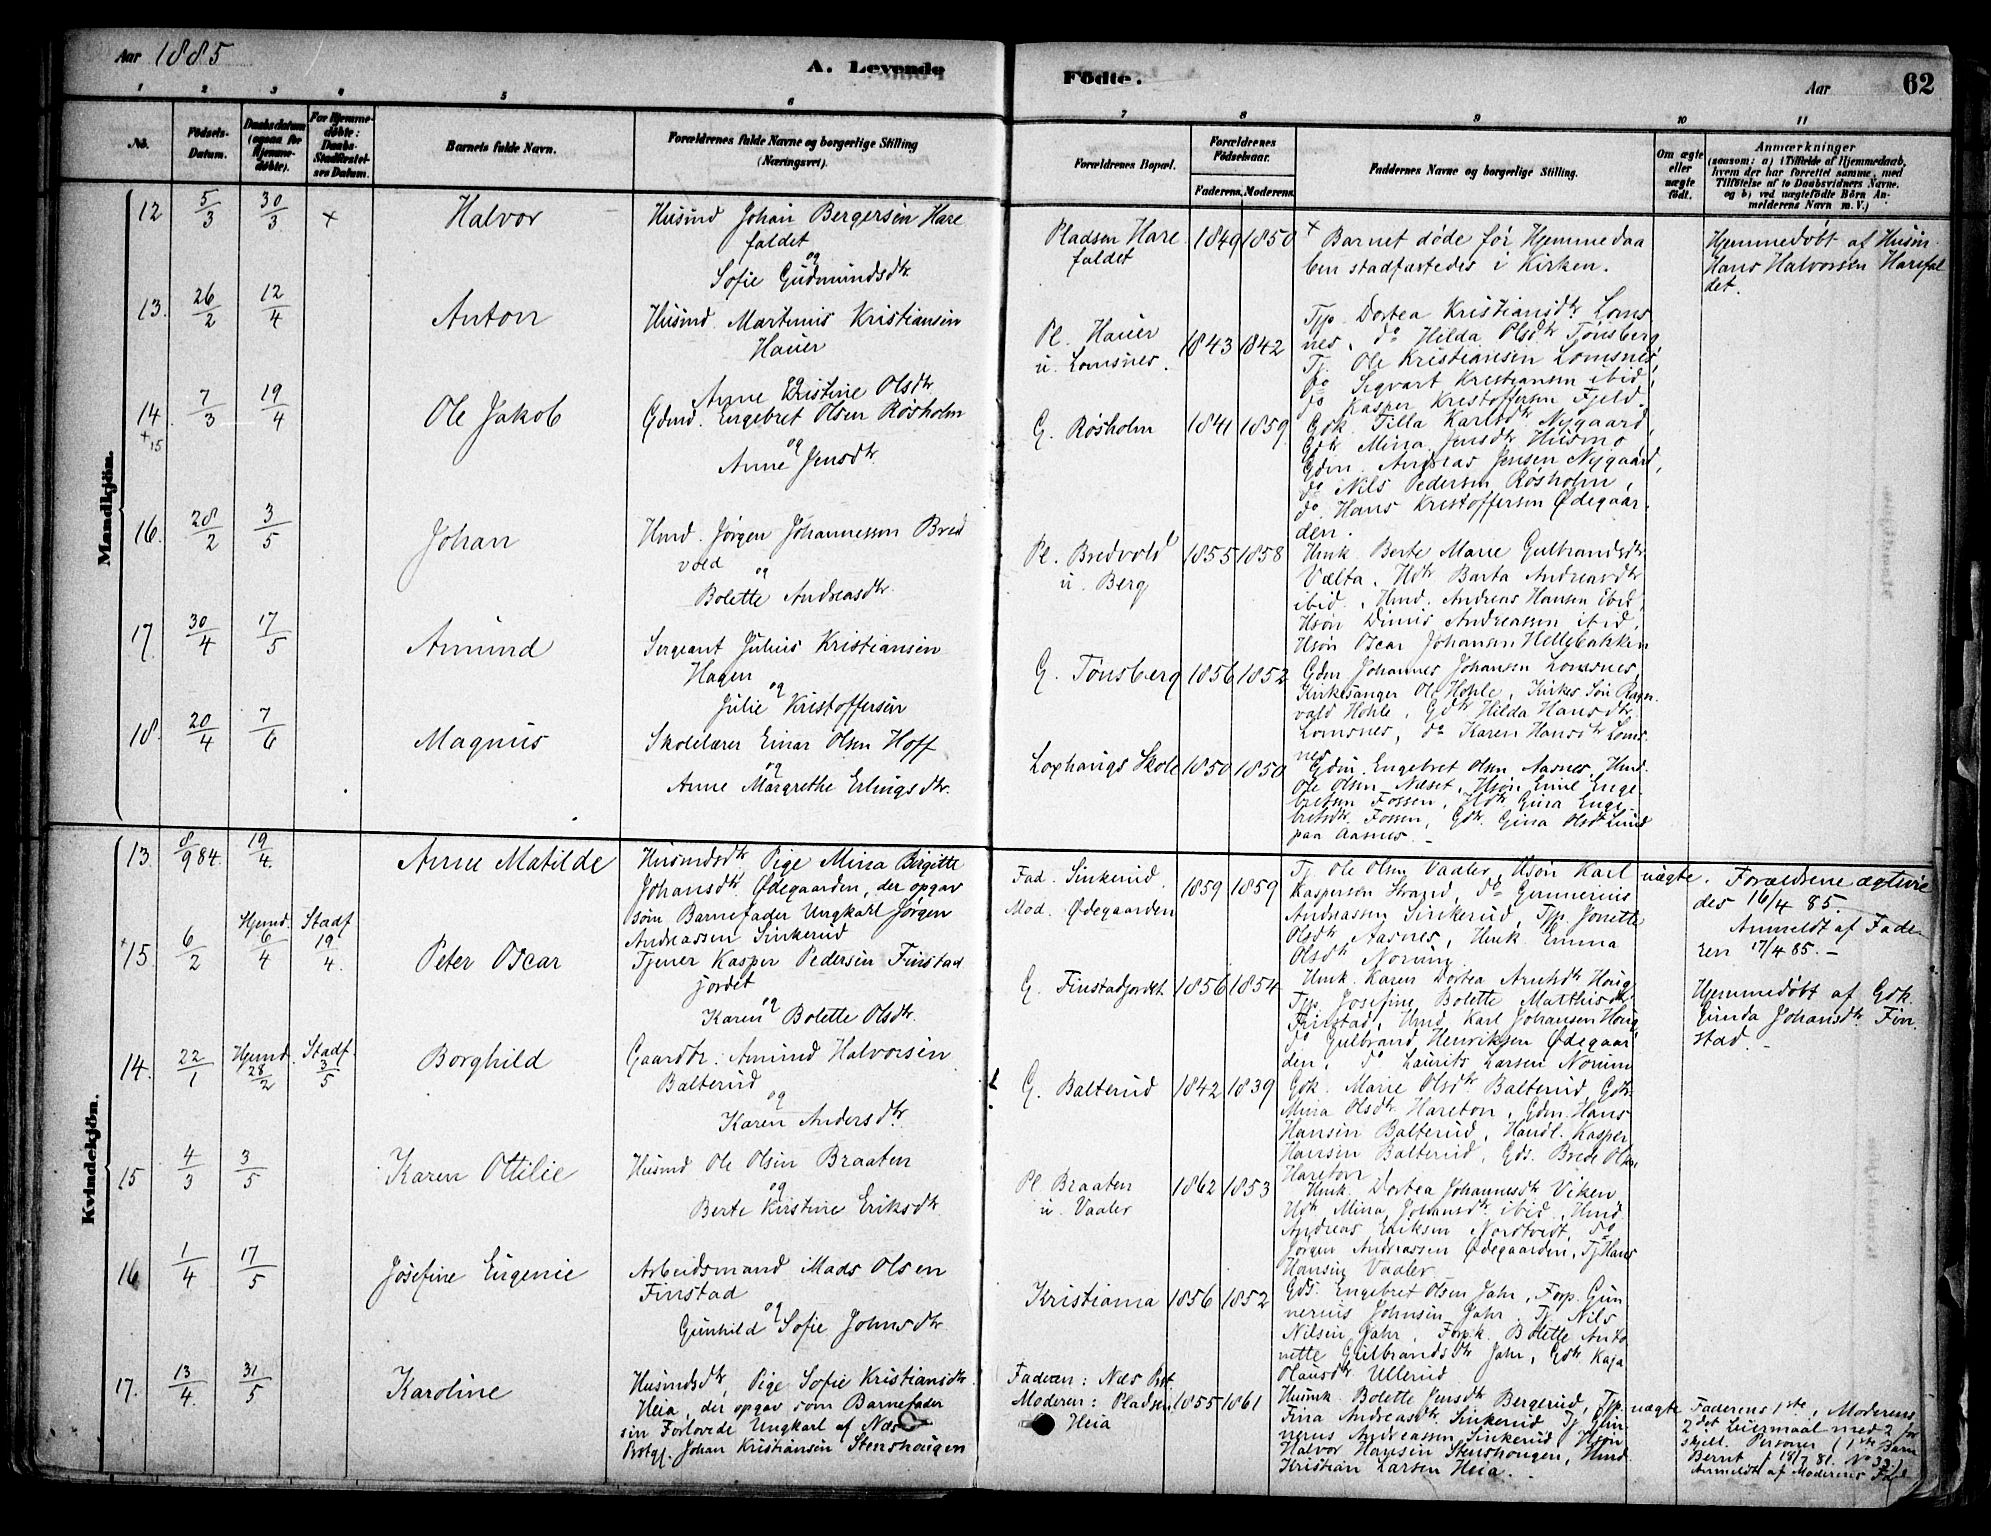 Aar 1885
A. Levende
Födte.
Aar
62
1 2 3 4 5 6 7 8 9 10 11
No.
Födsels-Datum.
Daabsdatum (ogsaa for Hjemmedöbte).
For Hjemmedöbte: Daabs-Stadfæstelses Datum.
Barnets fulde Navn.
Forældrenes fulde Navne og borgerlige Stilling (Næringsvei).
Forældrenes Bopæl.
Forældrenes Födselsaar.
Faderens. Moderens.
Faddernes Navne og borgerlige Stilling.
Om ægte eller uægte födt.
Anmærkninger
(saasom: a) i Tilfælde af Hjemmedaab, hvem der har forrettet samme, med Tilföielse af to Daabsvidners Navne. og b) ved uægtefödte Börn Anmelderens Navn m. V.)
Mandkjön.
12 5/3 30/3 + Halvor
Husmd Johan Bergersen Hare
faldet
og
Sofie Gudmundsdtr
Pladsen Hare
faldet
1849 1850
+ Barnet døde før Hjemmedaa
ben stadfæstedes i Kirken.
Hjemmedøbt af Husm.
Hans Halvorsen Harefal
det.
13. 26/2 12/4 Anton
Husmd. Martinus Kristiansen
Hauer
og
Anne Kristine Olsdtr
Pl. Hauer
u. Lomsnes.
1843 1842
Tjp. Dortea Kristiansdtr Loms
nes, do Hilda Olsdtr Tønsberg,
Tj. Ole Kristiansen Lomsnes,
do Sigvart Kristiansen ibid,
do Kasper Kristoffersen Fjeld.
14 + 15 7/3 19/4 Ole Jakob
Gdmd. Engebret Olsen Røsholm
og
Anne Jensdtr
G. Røsholm
1841 1859
Gdk. Tilla Karlsdtr Nygaard,
Gdtr Mina Jensdtr Husmo
Gdm. Andreas Jensen Nygaard,
do Nils Pedersen Røsholm,
do Hans Kristoffersen Ødegaar
den.
16. 28/2 3/5 Johan
Hmd. Jørgen Johannessen Bred
vold
og
Bolette Andreasdtr
Pl. Bredvold
u. Berg
1855 1858
Hmk. Berte Marie Gulbrandsdtr
Vælta, Hdtr Barta Andreasdtr
ibid., Hmd. Andreas Hansen ibid,
Hsøn Dimis Andreassen ibid,
Hsøn Oscar Johansen Hellebakken
17. 30/4 17/5 Amund
Sergeant Julius Kristiansen
Hagen
og
Julie Kristoffersen
G. Tønsberg
1856 1852
Gdm Johannes Johansen Lomsnes,
Kirkesanger Ole Hohle, Kirkes. Søn Ragn
vald Hohle, Gdtr Hilda Hansdtr
Lomsnes, do Karen Hansdtr Loms
nes
18. 20/4 7/6 Magnus
Skolelærer Einar Olsen Hoff
og
Anne Margrethe Erlingsdtr.
Loxhaugs Skole
1850 1850
Gdm. Engebret Olsen Aasnes, Hmd.
Ole Olsen Næset, Hsøn Emil Enge
bretsen Fossen, Hdtr Gina Enge
bretsdtr Fossen, Gdtr. Gina Olsdtr Lund
paa Aasnes. –
Kvindekjön.
13. 8/9 84. 19/4. Anne Matilde
Husmdsdtr Pige Mina Birgitte
Johansdtr Ødegaarden, der opgav
som Barnefader Ungkarl Jørgen
Andreassen Sinkerud
Fad. Sinkerud
Mod. Ødegaarden
1859 1859
Tj. Ole Olsen Vaaler, Hsøn Karl
Kaspersen Strand, do Gunnerius
Andreassen Sinkerud, Tjp. Jonette
Olsdtr Aasnes, Hmk. Emma
Olsdtr Norum
uægte.
Forældrene ægtevie
des 16/4 85.
Anmeldt af Fade
ren 17/4 85. –
+ 15. 6/2 Hjemd. 6/4 Stadf 19/4. Peter Oscar
Tjener Kasper Pedersen Finstad
jordet
og
Karen Bolette Olsdtr.
G. Finstadjordet
1856 1854
Hmk. Karen Dortea Arnesdtr Houg
Tjp. Josefine Bolette Matthisdtr
Finstad, Hmd. Karl Johansen Houg,
do Gulbrand Henriksen Ødegaar
den, do Laurits Larsen Norum
Hjemmedøbt af Gdk.
Gunda Johansdtr. Fin
stad. –
14. 22/1 Hjemd. 28/2 Stadf. 3/5 Borghild
Gaardbr. Amund Halvorsen
Balterud
og
Karen Andersdtr.
G. Balterud
1842 1839
Gdk. Marie Olsdtr Balterud, Gdtr
Mina Olsdtr Hareton, Gdm. Hans
Hansen Balterud, Handl. Kasper
Hansen Balterud, Gds. Brede Olsen
Hareton
15 4/3 3/5 Karen Ottilie
Husmd Ole Olsen Braaten
og
Berte Kirstine Eriksdtr
Pl Braaten
u. Vaaler
1862 1853
Hmk Dortea Johannesdtr Viken,
Hdtr Mina Johansdtr ibid, Hmd
Andreas Eriksen Nordtvidt, do
Jørgen Andreassen Ødegaarden, Tj Hans
Hansen Vaaler
16 1/4 17/5 Josefine Eugenie
Arbeidsmand Mads Olsen
Finstad
og
Gunhild Sofie Johnsdtr
Kristiania
1856 1852
Gds. Engebret Olsen Jahr, Forp. Gun
nerius Johnsen Jahr, Tj. Nils
Nilsen Jahr, Forpk. Bolette Anto
nette Gulbrandsdtr Jahr, Gdtr Kaja
Olausdtr Ullerud
17. 13/4 31/5 Karoline
Husmdsdtr, Pige Sofie Kristiansdtr
Heia, der opgav som Barnefader
sin Forlovede Ungkarl af Næs
Prstgj. Johan Kristiansen Stenshaugen
Faderen: Næs Prst.
Moderen: Pladsen
Heia
1855 1861
Husmk. Bolette Jensdtr Bergerud, Tjp.
Tina Andreasdtr Sinkerud, Tj Gun
nerus Andreassen Sinkerud, Hsøn
Halvor Hansen Stenshougen, Hmd.
Kristian Larsen Heia. –
uægte
Faderens 1ste, Moderens
2det Leiermaal med 2 for
skjell. Personer (1ste Barn
Bernt f 18/7 81. No 33.)
Anmeldt af Moderens Fa